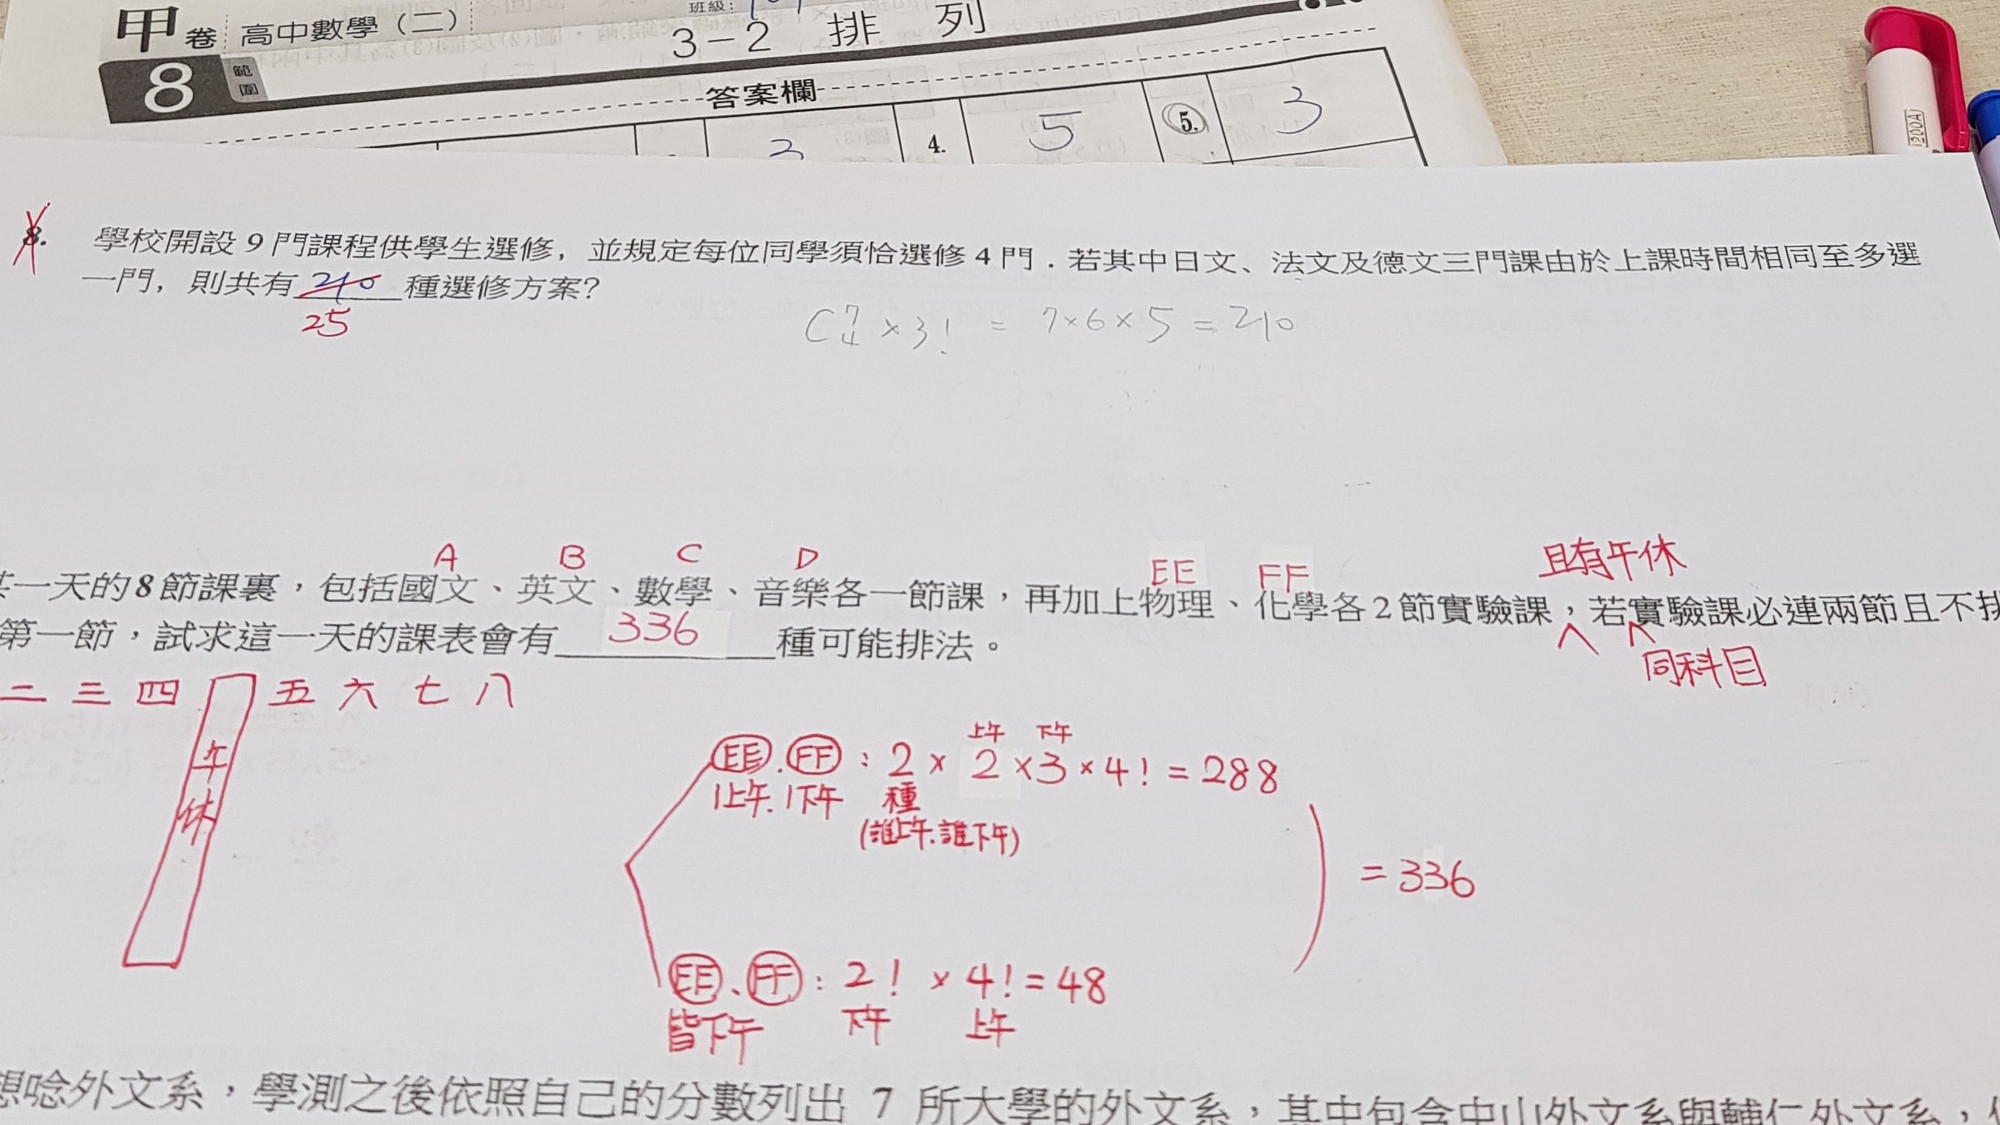 甲卷 高中數學(二)
班級:
3-2 排列
8 範圍
答案欄
3 4. 5 5. 3
8. 學校開設 9 門課程供學生選修，並規定每位同學須恰選修 4 門．若其中日文、法文及德文三門課由於上課時間相同至多選
一門，則共有 210 種選修方案?
25
C⁷₄ × 3! = 7×6×5 = 210
A B C D EE FF 且有午休
一天的8節課裏，包括國文、英文、數學、音樂各一節課，再加上物理、化學各2節實驗課，若實驗課必連兩節且不排
同科目
第一節，試求這一天的課表會有 336 種可能排法。
二 三 四 午休 五 六 七 八
上午 下午
EE.FF : 2 × 2 × 3 × 4! = 288
1上午.1下午 種
(誰上午.誰下午)
= 336
EE、FF : 2! × 4! = 48
皆下午 下午 上午
想唸外文系，學測之後依照自己的分數列出 7 所大學的外文系，其中包含中山外文系與輔仁外文系，